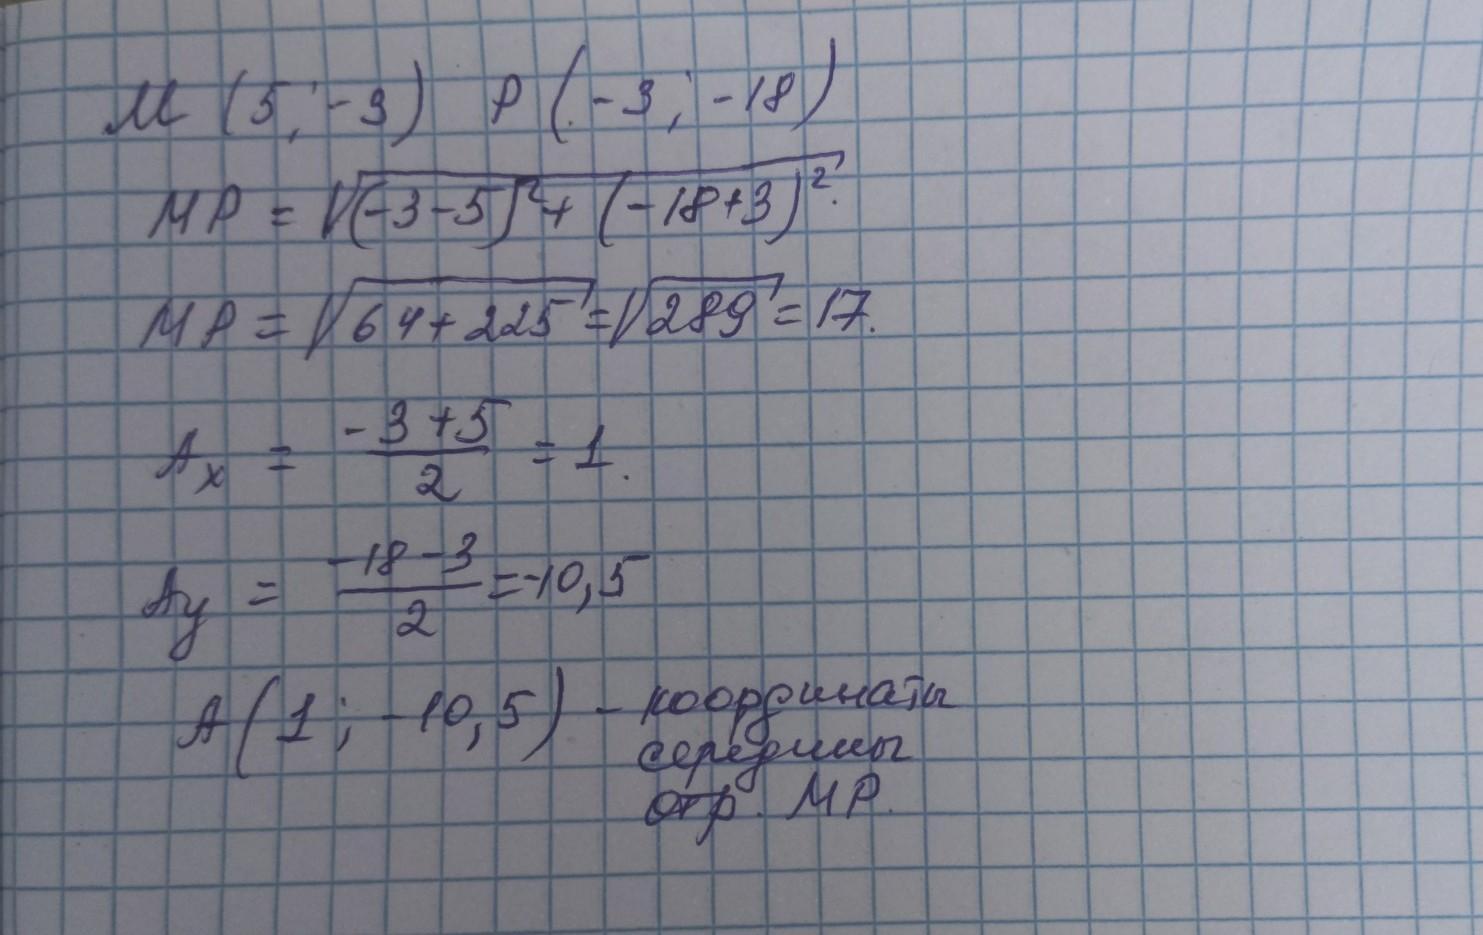 M (5; -3) P (-3; -18)
MP = √((-3-5)² + (-18+3)²).
MP = √(64+225) = √289 = 17.
Aₓ = (-3+5)/2 = 1.
Ay = (-18-3)/2 = -10,5
A(1; -10,5) - координаты
середины
отр. MP.